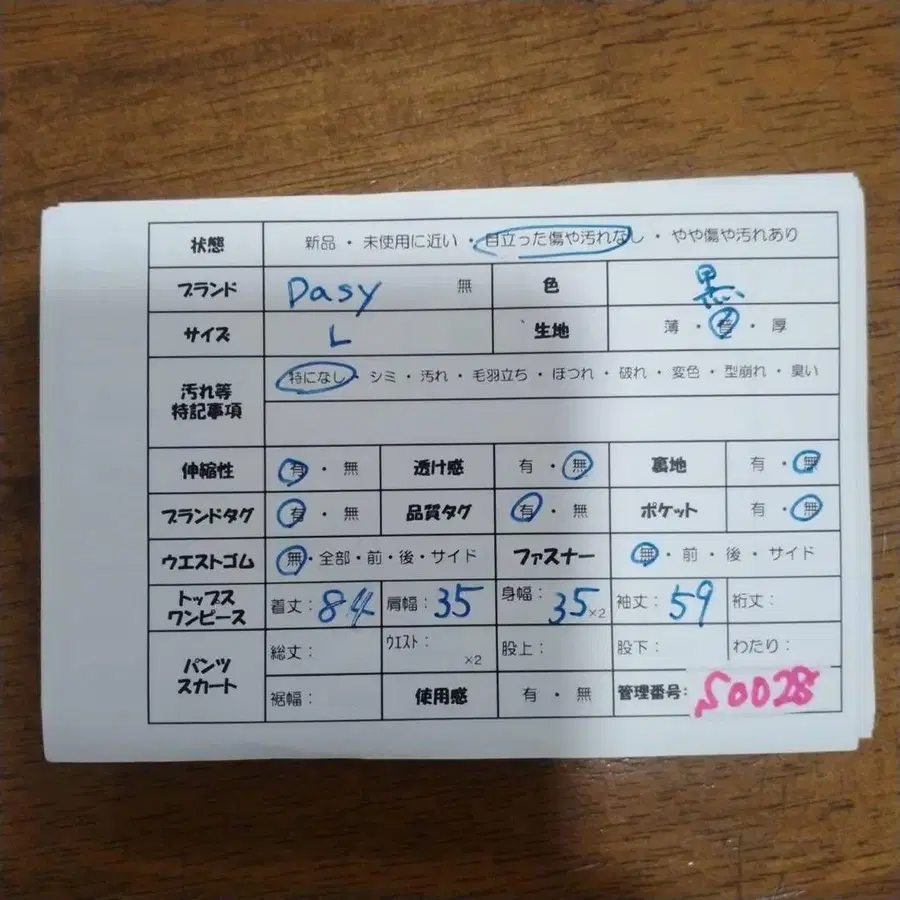 状態 新品・未使用に近い・目立った傷や汚れなし・やや傷や汚れあり
ブランド Dasy 無 色 黒
サイズ L 生地 薄・普・厚
汚れ等 特記事項 特になし・シミ・汚れ・毛羽立ち・ほつれ・破れ・変色・型崩れ・臭い
伸縮性 有・無 透け感 有・無 裏地 有・無
ブランドタグ 有・無 品質タグ 有・無 ポケット 有・無
ウエストゴム 無・全部・前・後・サイド ファスナー 無・前・後・サイド
トップス ワンピース 着丈:84 肩幅:35 身幅:35×2 袖丈:59 裄丈:
パンツ スカート 総丈: ウエスト: ×2 股上: 股下: わたり:
裾幅: 使用感 有・無 管理番号: S0028